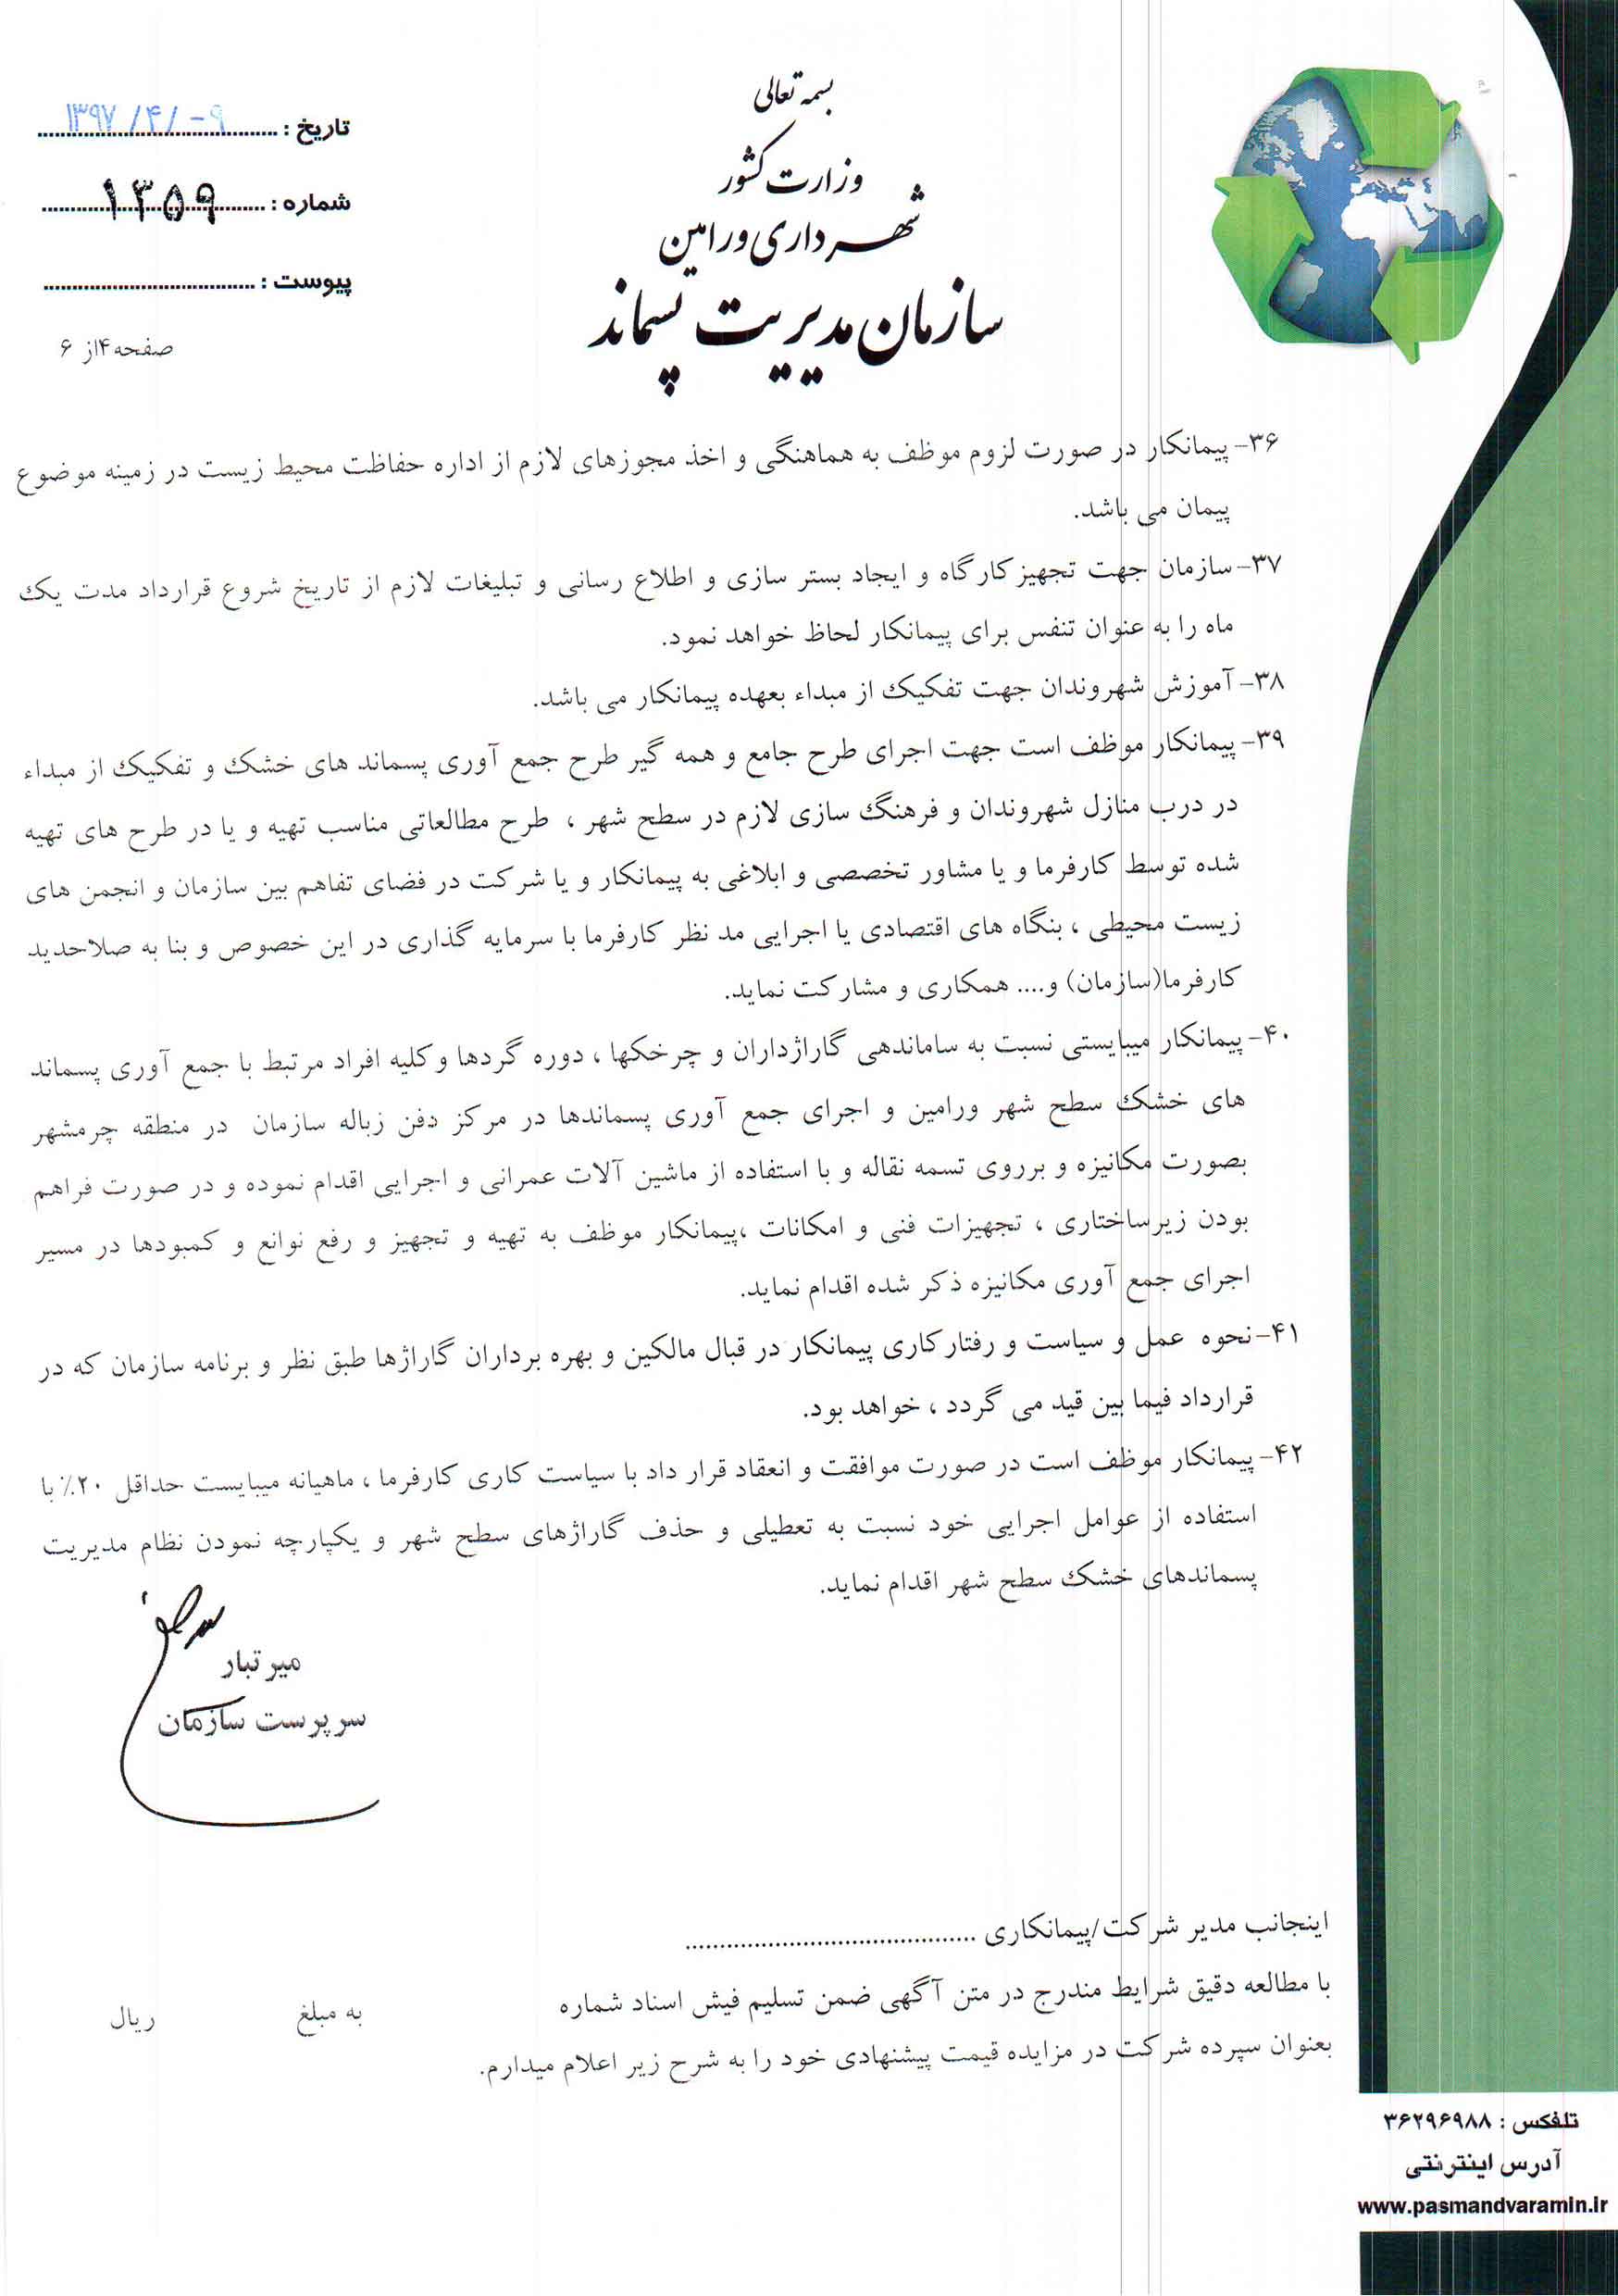 بسمه تعالی
وزارت کشور
شهرداری ورامین
سازمان مدیریت پسماند
تاریخ : ۱۳۹۷/۴/-۹
شماره : ۱۳۵۹
پیوست :
صفحه۴از ۶
۳۶- پیمانکار در صورت لزوم موظف به هماهنگی و اخذ مجوزهای لازم از اداره حفاظت محیط زیست در زمینه موضوع
پیمان می باشد.
۳۷- سازمان جهت تجهیزکارگاه و ایجاد بستر سازی و اطلاع رسانی و تبلیغات لازم از تاریخ شروع قرارداد مدت یک
ماه را به عنوان تنفس برای پیمانکار لحاظ خواهد نمود.
۳۸- آموزش شهروندان جهت تفکیک از مبداء بعهده پیمانکار می باشد.
۳۹- پیمانکار موظف است جهت اجرای طرح جامع و همه گیر طرح جمع آوری پسماند های خشک و تفکیک از مبداء
در درب منازل شهروندان و فرهنگ سازی لازم در سطح شهر ، طرح مطالعاتی مناسب تهیه و یا در طرح های تهیه
شده توسط کارفرما و یا مشاور تخصصی و ابلاغی به پیمانکار و یا شرکت در فضای تفاهم بین سازمان و انجمن های
زیست محیطی ، بنگاه های اقتصادی یا اجرایی مد نظر کارفرما با سرمایه گذاری در این خصوص و بنا به صلاحدید
کارفرما(سازمان) و.... همکاری و مشارکت نماید.
۴۰- پیمانکار میبایستی نسبت به ساماندهی گاراژداران و چرخکها ، دوره گردها و کلیه افراد مرتبط با جمع آوری پسماند
های خشک سطح شهر ورامین و اجرای جمع آوری پسماندها در مرکز دفن زباله سازمان در منطقه چرمشهر
بصورت مکانیزه و برروی تسمه نقاله و با استفاده از ماشین آلات عمرانی و اجرایی اقدام نموده و در صورت فراهم
بودن زیرساختاری ، تجهیزات فنی و امکانات ،پیمانکار موظف به تهیه و تجهیز و رفع نوانع و کمبودها در مسیر
اجرای جمع آوری مکانیزه ذکر شده اقدام نماید.
۴۱- نحوه عمل و سیاست و رفتارکاری پیمانکار در قبال مالکین و بهره برداران گاراژها طبق نظر و برنامه سازمان که در
قرارداد فیما بین قید می گردد ، خواهد بود.
۴۲- پیمانکار موظف است در صورت موافقت و انعقاد قرار داد با سیاست کاری کارفرما ، ماهیانه میبایست حداقل ۲۰٪ با
استفاده از عوامل اجرایی خود نسبت به تعطیلی و حذف گاراژهای سطح شهر و یکپارچه نمودن نظام مدیریت
پسماندهای خشک سطح شهر اقدام نماید.
میرتبار
سرپرست سازمان
اینجانب مدیر شرکت/پیمانکاری ..........................................
با مطالعه دقیق شرایط مندرج در متن آگهی ضمن تسلیم فیش اسناد شماره به مبلغ ریال
بعنوان سپرده شرکت در مزایده قیمت پیشنهادی خود را به شرح زیر اعلام میدارم.
تلفکس : ۳۶۲۹۶۹۸۸
آدرس اینترنتی
www.pasmandvaramin.ir